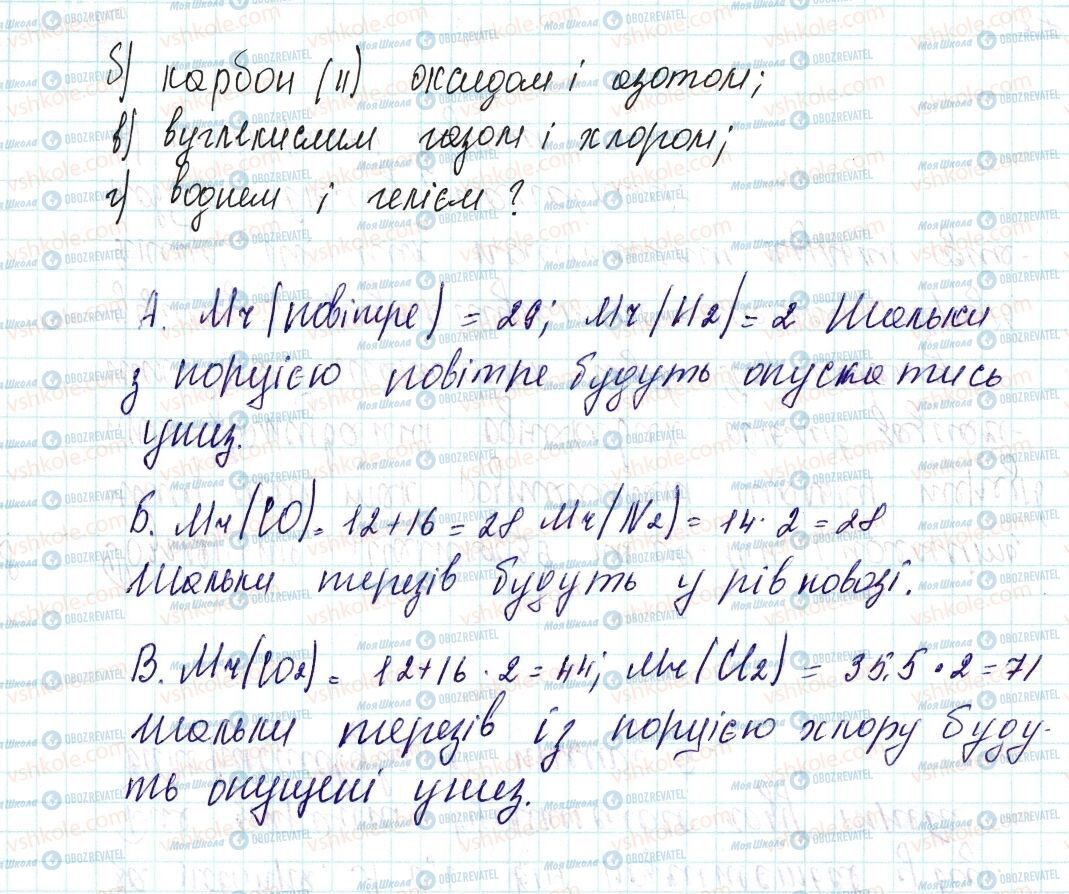 б) карбон (ІІ) оксидом і азотом;
в) вуглекислим газом і хлором;
г) воднем і гелієм?
А. Mr(повітре) = 29; Mr(H2) = 2 Шальки
з порцією повітре будуть опускатись
униз.
Б. Mr(CO) = 12+16 = 28 Mr(N2) = 14·2 = 28
Шальки терезів будуть у рівновазі.
В. Mr(CO2) = 12+16·2 = 44; Mr(Cl2) = 35,5·2 = 71
Шальки терезів із порцією хлору буду-
ть опущені униз.
МояШкола OBOZREVATEL
vshkole.com